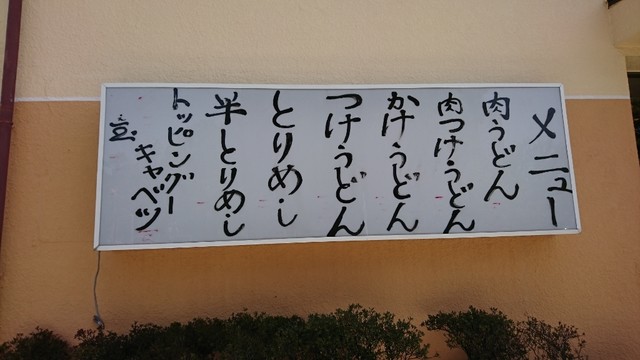 メニュー
肉うどん
肉つけうどん
かけうどん
つけうどん
とりめし
半とりめし
トッピングー
キャベツ